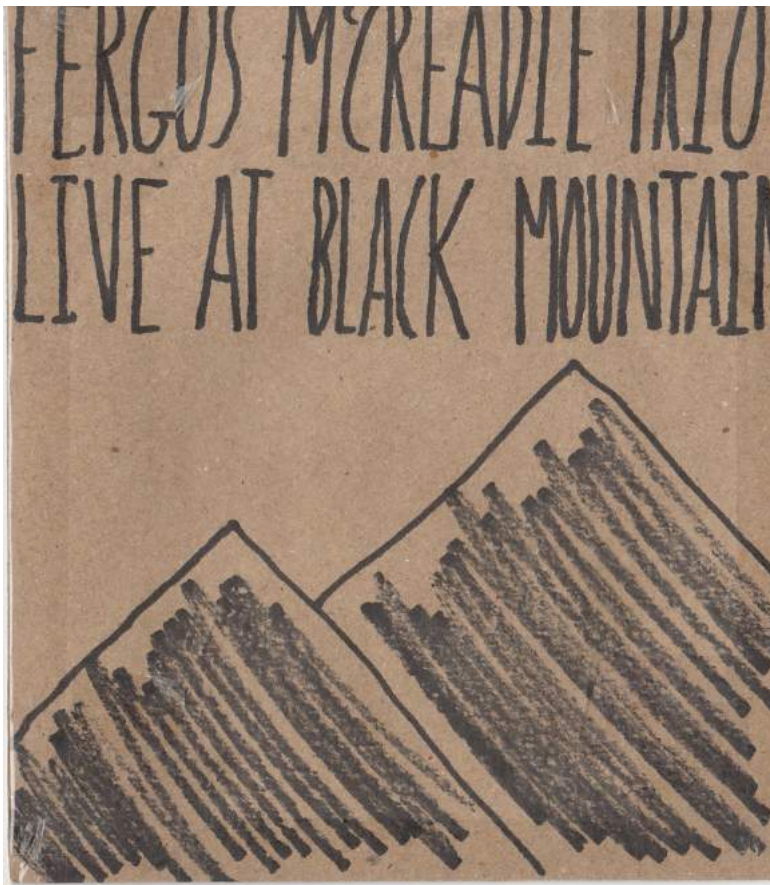 FERGUS McCREADIE TRIO
LIVE AT BLACK MOUNTAIN